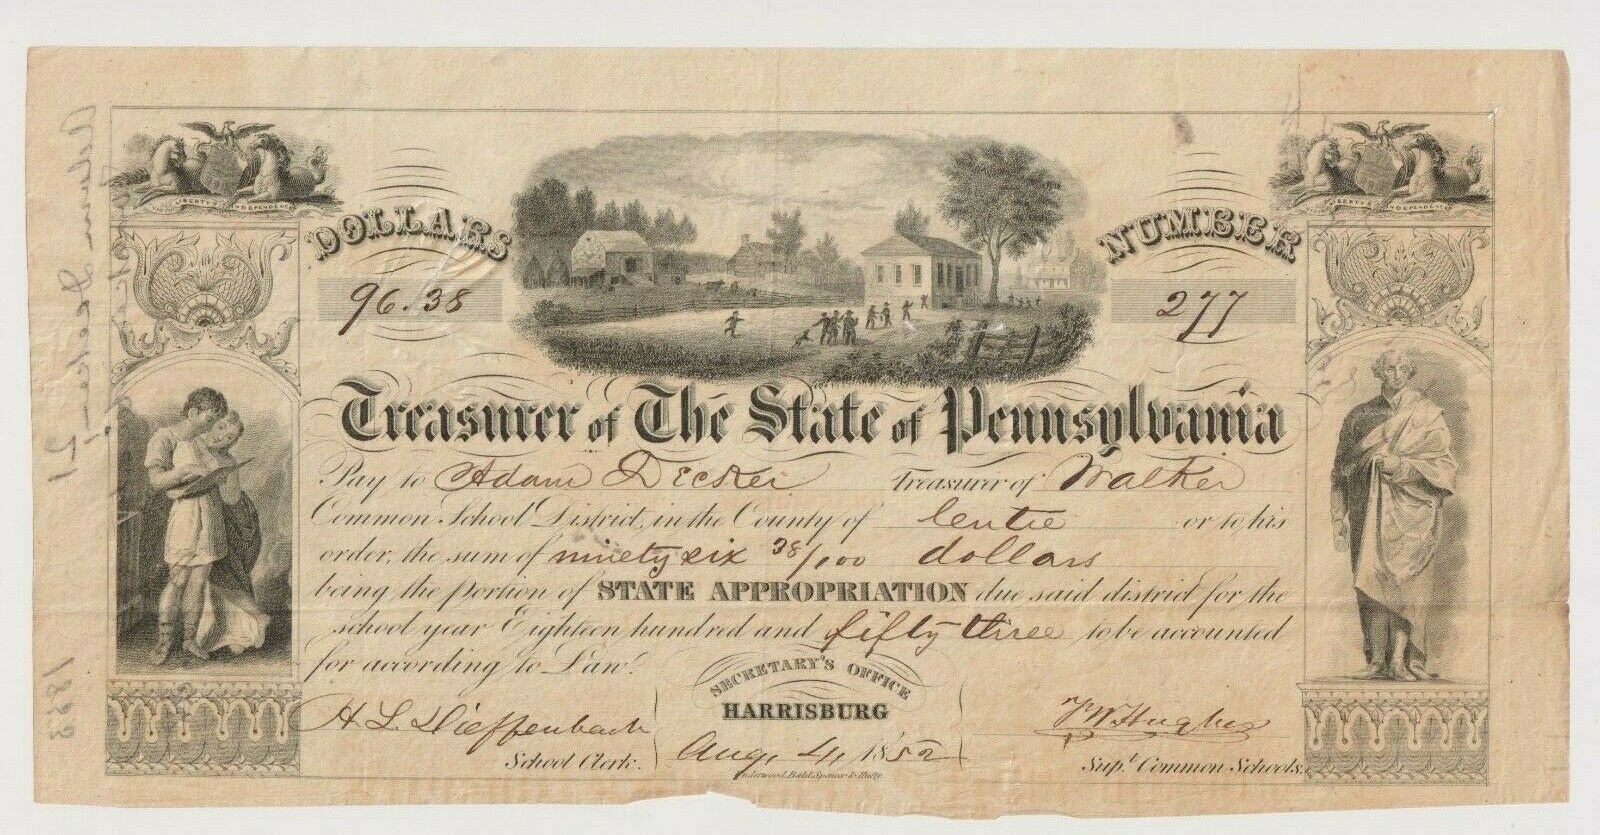 DOLLARS
NUMBER
96.38
277
Treasurer of The State of Pennsylvania
Pay to Adam Decker Treasurer of Walker
Common School District, in the County of Centre or to his
order, the sum of ninety six 38/100 dollars
being the portion of STATE APPROPRIATION due said district for the
school year Eighteen hundred and fifty three to be accounted
for according to Law.
SECRETARY'S OFFICE
HARRISBURG
H. L. Dieffenbach
F W Hughes
Aug. 4, 1852
School Clerk.
Supt. Common Schools.
Underwood, Bald, Spencer & Hufty